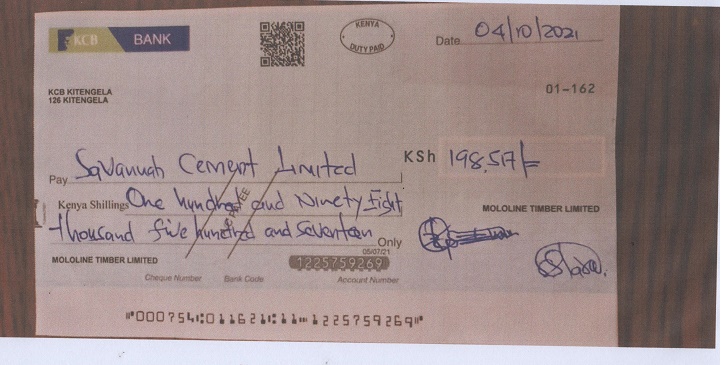 KCB BANK
KENYA
DUTY PAID
Date 04/10/2021
KCB KITENGELA
126 KITENGELA
01-162
Pay Savannah Cement Limited KSh 198,517/=
Kenya Shillings One hundred and Ninety Eight
thousand five hundred and seventeen Only
A/C PAYEE
MOLOLINE TIMBER LIMITED
05/07/21
MOLOLINE TIMBER LIMITED 1225759269
Cheque Number Bank Code Account Number
"000754:011621:11-1225759269"